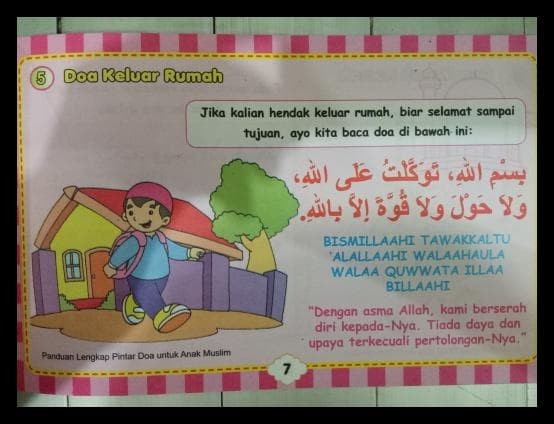 5 Doa Keluar Rumah
Jika kalian hendak keluar rumah, biar selamat sampai
tujuan, ayo kita baca doa di bawah ini:
بِسْمِ اللهِ، تَوَكَّلْتُ عَلَى اللهِ،
وَلاَ حَوْلَ وَلاَ قُوَّةَ اِلاَّ بِاللهِ.
BISMILLAAHI TAWAKKALTU
'ALALLAAHI WALAAHAULA
WALAA QUWWATA ILLAA
BILLAAHI
"Dengan asma Allah, kami berserah
diri kepada-Nya. Tiada daya dan
upaya terkecuali pertolongan-Nya."
Panduan Lengkap Pintar Doa untuk Anak Muslim
7